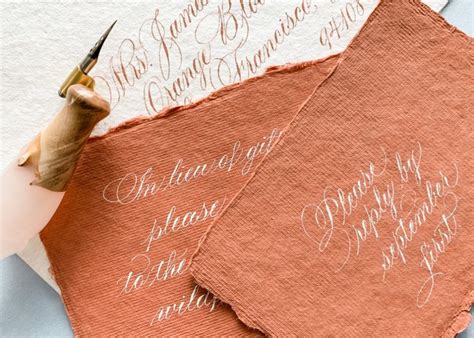 Mrs. Jam
Orange Blo
Francisco,
94108
In lieu of gif
please
to the
wildf
Please
reply by
september
first